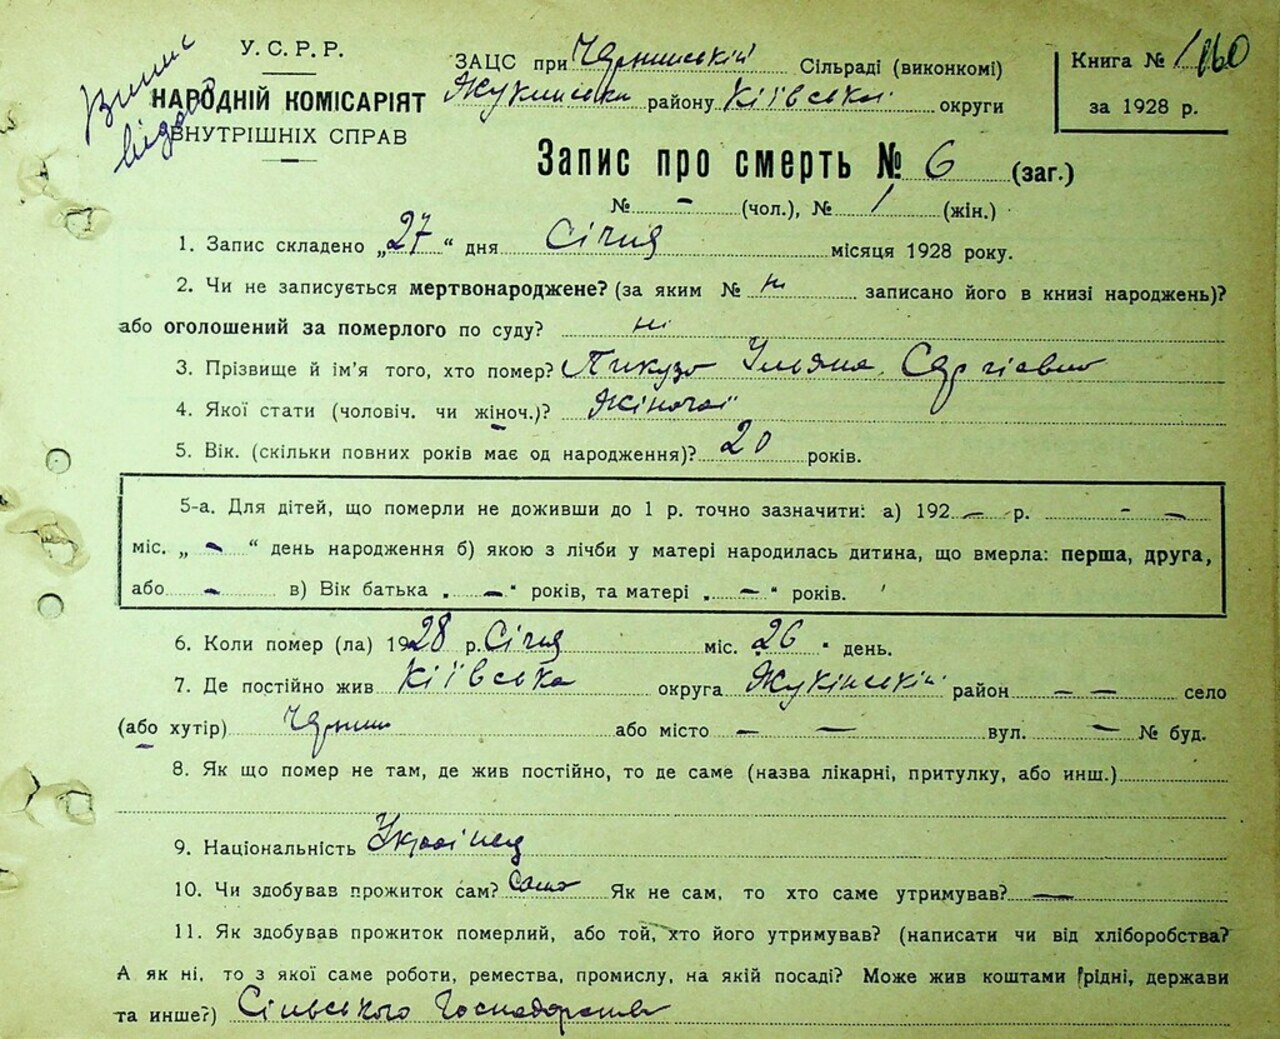 Випис
видано
У. С. Р. Р.
НАРОДНІЙ КОМІСАРІЯТ
ВНУТРІШНІХ СПРАВ
ЗАЦС при Чернинській Сільраді (виконкомі)
Жукинська району Київської округи
Книга № 1 160
за 1928 р.
Запис про смерть № 6 (заг.)
№ - (чол.), № 1 (жін.)
1. Запис складено „27“ дня Січня місяця 1928 року.
2. Чи не записується мертвонароджене? (за яким № ні записано його в книзі народжень)?
або оголошений за померлого по суду? ні
3. Прізвище й ім’я того, хто помер? Пикузо Уляна Сергієвно
4. Якої стати (чоловіч. чи жіноч.)? Жіночої
5. Вік. (скільки повних років має од народження)? 20 років.
5-а. Для дітей, що померли не доживши до 1 р. точно зазначити: а) 192 — р. - —
міс. „ - “ день народження б) якою з лічби у матері народилась дитина, що вмерла: перша, друга,
або - в) Вік батька „ — “ років, та матері „ — “ років.
6. Коли помер (ла) 1928 р. Січня міс. 26 " день.
7. Де постійно жив Київська округа Жукінській район — — село
(або хутір) Чернин або місто — — вул. — № буд.
8. Як що помер не там, де жив постійно, то де саме (назва лікарні, притулку, або инш.)
9. Національність Українец
10. Чи здобував прожиток сам? Само Як не сам, то хто саме утримував? —
11. Як здобував прожиток померлий, або той, хто його утримував? (написати чи від хліборобства?
А як ні, то з якої саме роботи, ремества, промислу, на якій посаді? Може жив коштами рідні, держави
та инше?) Сільського Господарства